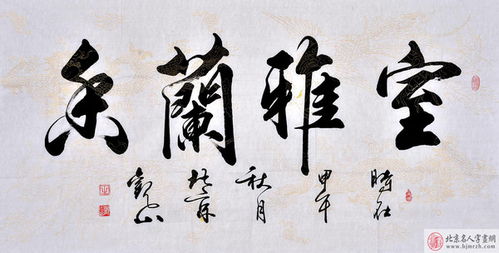 室雅蘭香
時在
甲午
秋月
於京
北京名人字畫網
www.bjmrzh.com